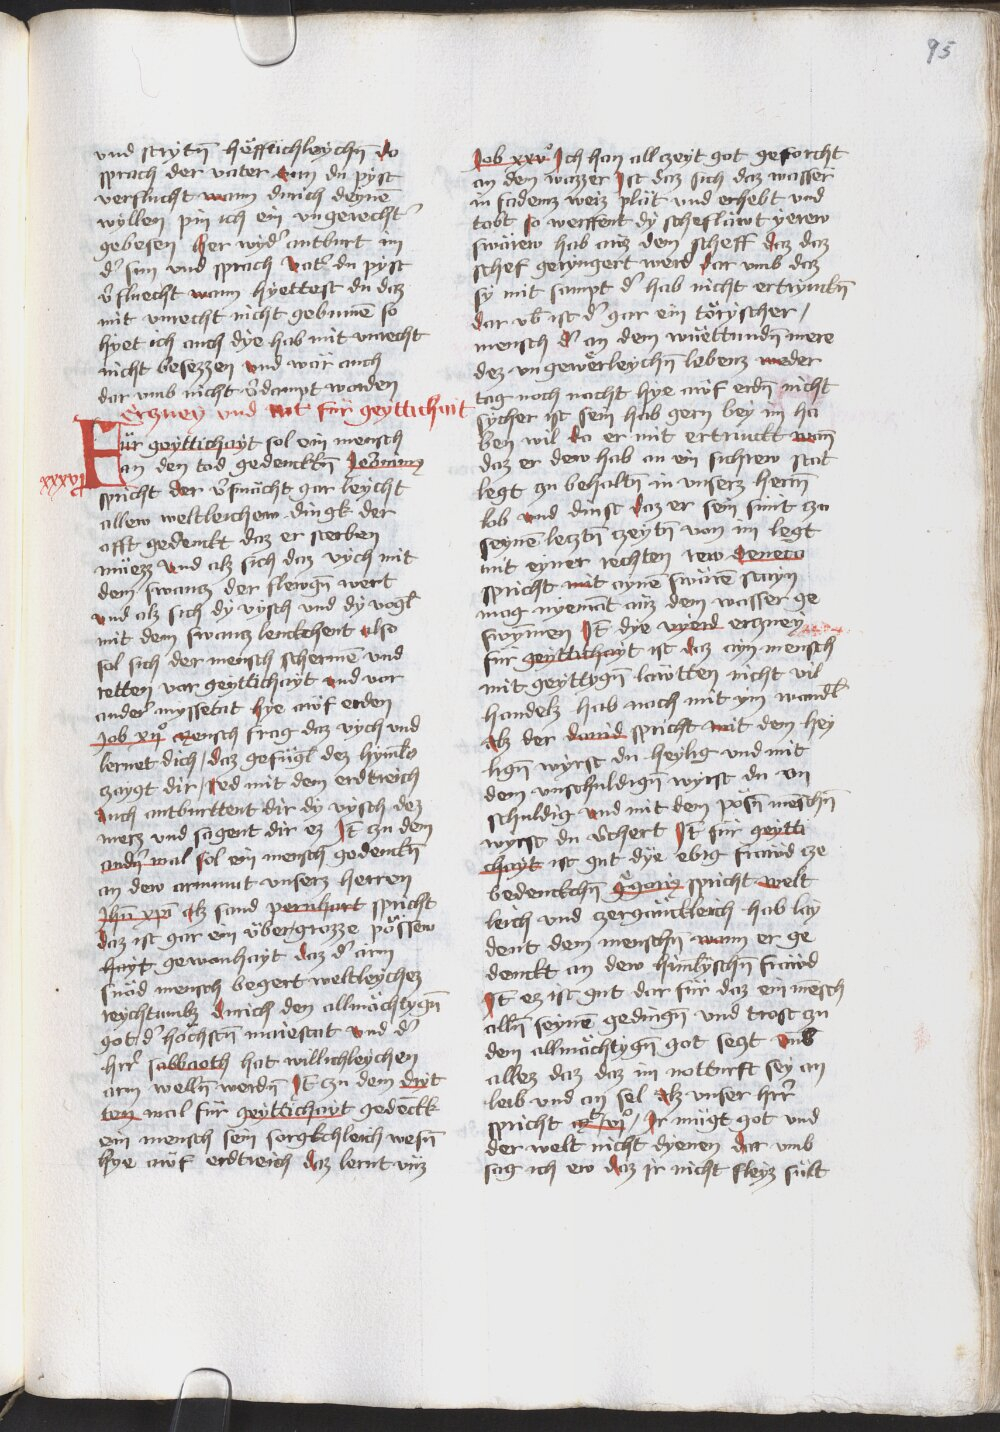 95
vnd scrytn̄ häfftichleychn̄ do
sprach der vater Sun du pyst
verflucht wann durich deynē
wyllen pin ich ein vngerechtˀ
gebesen her wydˀ antburt im
dˀ sun vnd sprach Vatˀ du pyst
vˀfluecht wann hyettest du daz
mit vnrecht nicht gebunnē so
hyet ich auch dye hab mit vnrecht
nicht besezzen vnd wär auch
dar vmb nicht vˀdampt warden
Erczney vnd Rat für geyttichait
xxxvj
Für geyttichayt sol ein mensch
an den tod gedenckn̄ Jeronimus
spricht der vˀsmächt gar leycht
allew weltleichew dingk der
offt gedenckt daz er sterben
müezz vnd alz sich daz vych mit
dem swancz der flewgn̄ wert
vnd alz sich dy vysch vnd dy vogl̄
mit dem swancz lenckchent also
sol sich der mensch schermē vnd
retten var geyttichayt vnd var
anderˀ myssetat hye awf erden
Job xijº Mensch frag daz vych vnd
lernet dich / daz gefügl dez hymls
czaygt dir / Red mit dem erdtreich
Auch antburttent dir dy vysch dez
merz vnd sagent dir ez It̄ czu dem
andn̄ mal sol ein mensch gedenckn̄
an dew armmut vnserz herren
Jhū xpī Alz sand pernhart spricht
daz ist gar ein vbergrozze pössew
hayt gewonhayt daz dˀ arm
snöd mensch begert weltleychez
reychtumbz durich den allmächtygn̄
got dˀ höchstn̄ maiestat vnd dˀ
hrrˀ sabbaoth hat willichleychen
arm welln̄ werdn̄ It̄ czu dem dryt
ten mal für geyttichayt gedēckk
ein mensch sein sorgkchleich wesn̄
hye awf erdtreich daz lernt vnz
Job xxvº Ich han allczeyt got geforcht
an dem wazzer Ist daz sich daz wasser
in fademz weiz plät vnd erhebt vnd
tobt so werffent dy schefläwt yerew
swärew hab auz dem scheff daz daz
schef geryngert werd dar vmb daz
sy mit sampt dˀ hab nicht ertrynckn̄
dar vb̄ ist dˀ gar ein törischer /
mensch dˀ an dem wuettundn̄ mere
dez vngewerleychn̄ lebenz weder
tag noch nacht hye awf erdn̄ nicht
sycher ist sein hab gern bey im ha
ben wil da er mit ertrinckt wan̄
daz er dew hab an ein sichrew stat
legt czu behaltn̄ in vnserz herrn̄
lob vnd dinst daz er sein sünt czu
seynē lecztn̄ czeytn̄ von im legt
mit eyner rechten rew Seneca
spricht mit aynē swärē stayn
mag nyemāt auz dem wasser ge
swymen It̄ dye vyerd erczney
für geyttichayt ist daz ain mensch
mit geyttygn̄ läwtten nicht vil
handelz hab noch mit yn wandl̄
Alz der dauid spricht mit dem hey
lign̄ wyrst du heylig vnd mit
dem vnschuldign̄ wyrst du vn
schuldig vnd mit dem pösn̄ mēschn̄
wyrst du vˀchert It̄ für geytti
chayt ist gut dye ebig frawd cze
bedenckchn̄ Gˀgorius spricht welt
leich vnd czergäncklleich hab lay
dent dem menschn̄ wann er ge
denckt an dew himlyschn̄ frawd
It̄ ez ist gut dar für daz ein mēsch
alln̄ seynē gedingn̄ vnd trost czu
dem allmächtygn̄ got seczt vmb
allez daz daz im notturft sey an
leib vnd an sel Alz vnser hrrˀ
spricht Mt̄ vjº / Ir mügt got vnd
der welt nicht dyenen dar vmb
sag ich ew daz jr nicht fleyz sült